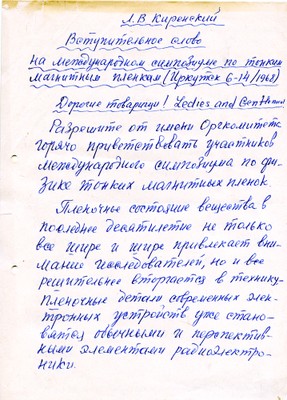 Л.В Киренский
Вступительное слово
на международном симпозиуме по тонким
магнитным пленкам (Иркутск 6-14/1968)
Дорогие товарищи! Ledies and Gentlemen
Разрешите от имени Оргкомитета
горячо приветствовать участников
международного симпозиума по фи-
зике тонких магнитных пленок.
Пленочное состояние вещества в
последнее десятилетие не только
все шире и шире привлекает вни-
мание исследователей, но и все
решительнее вторгается в технику.
Пленочные детали современных элек-
тронных устройств уже стано-
вятся обычными и перспектив-
ными элементами радиоэлектро-
ники.